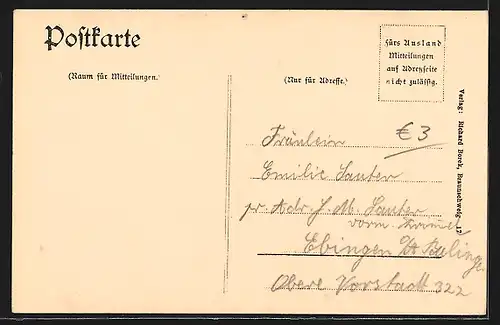 Postkarte
fürs Ausland
Mitteilungen
auf Adreßseite
nicht zulässig.
(Raum für Mitteilungen.)
(Nur für Adresse.)
€3
Fräulein
Emilie Sauter
pr. Adr. J. M. Sauter
vorm.
Ebingen
Obere Vorstadt 322
Verlag: Richard Borek, Braunschweig. 17